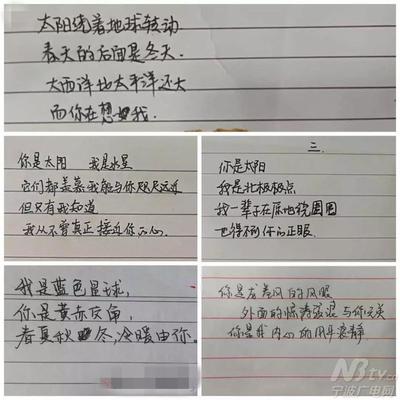 太阳绕着地球转动
春天的后面是冬天.
大西洋比太平洋还大
而你在想我.
你是太阳 我是水星
它们都羡慕我能与你咫尺远近
但只有我知道
我从不曾真正接近你的心.
三.
你是太阳
我是北极极点
我一辈子在原地绕圈圈
也得不到你的正眼.
我是蓝色星球,
你是黄赤交角,
春夏秋冬,冷暖由你.
你是龙卷风的风眼
外面的惊涛骇浪与你无关
你是我内心的风平浪静.
NBtv
宁波广电网